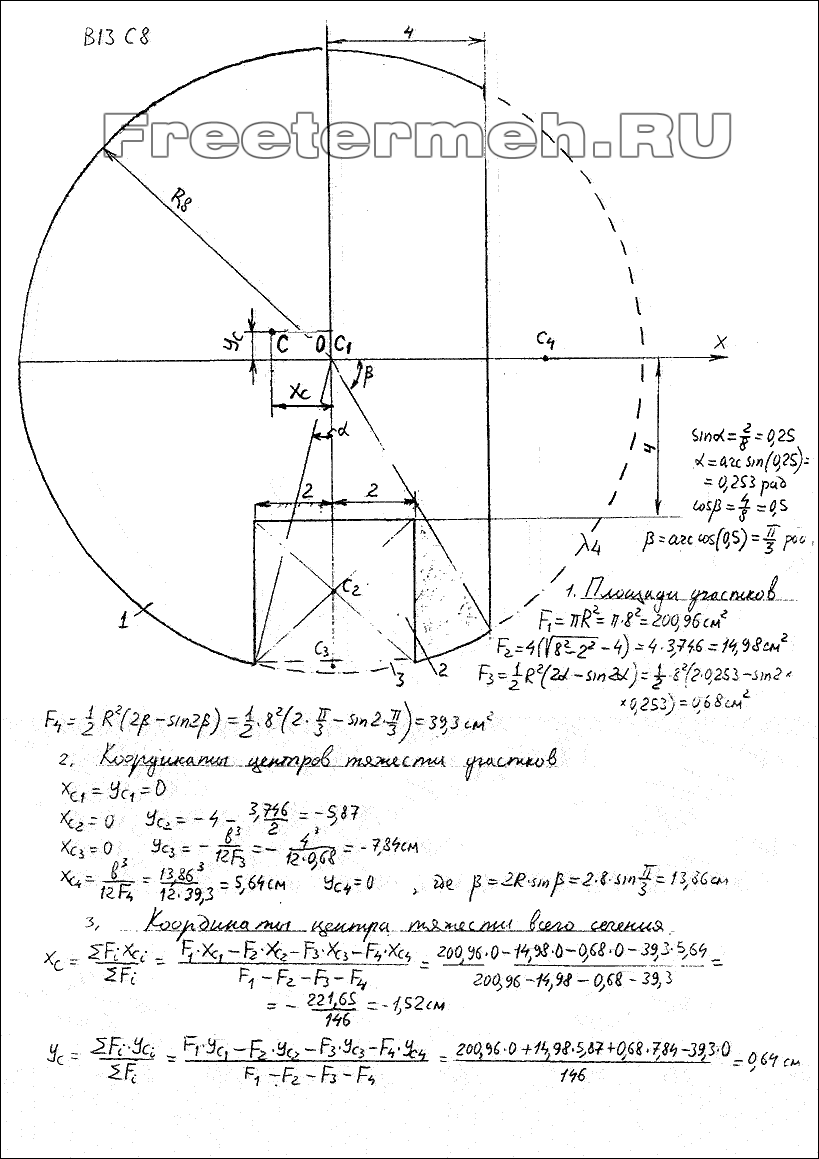 В13 С8
4
Freetermeh.RU
R8
yc
C O C1
C4 X
β
Xc
α
4
sinα = 2/8 = 0,25
α = arc sin(0,25) =
= 0,253 рад
cosβ = 4/8 = 0,5
β = arc cos(0,5) = π/3 рад.
2 2
λ4
C2
1
C3
3 2
1. Площади участков
F1 = πR² = π·8² = 200,96 см²
F2 = 4(√8²-2² - 4) = 4·3,746 = 14,98 см²
F3 = 1/2 R²(2α - sin2α) = 1/2·8²(2·0,253 - sin2×
×0,253) = 0,68 см²
F4 = 1/2 R²(2β - sin2β) = 1/2·8²(2·π/3 - sin2·π/3) = 39,3 см²
2. Координаты центров тяжести участков
Xc1 = Yc1 = 0
Xc2 = 0 Yc2 = -4 - 3,746/2 = -5,87
Xc3 = 0 Yc3 = - в³/12F3 = - 4³/12·0,68 = -7,84 см
Xc4 = в³/12F4 = 13,86³/12·39,3 = 5,64 см Yc4 = 0 , где β = 2R·sinβ = 2·8·sin π/3 = 13,86 см
3. Координаты центра тяжести всего сечения
Xc = ΣFi·Xci/ΣFi = F1·Xc1 - F2·Xc2 - F3·Xc3 - F4·Xc4/F1 - F2 - F3 - F4 = 200,96·0 - 14,98·0 - 0,68·0 - 39,3·5,64/200,96 - 14,98 - 0,68 - 39,3 =
= - 221,65/146 = -1,52 см
Yc = ΣFi·Yci/ΣFi = F1·Yc1 - F2·Yc2 - F3·Yc3 - F4·Yc4/F1 - F2 - F3 - F4 = 200,96·0 + 14,98·5,87 + 0,68·7,84 - 39,3·0/146 = 0,64 см